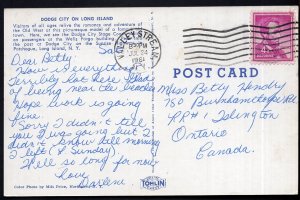 DODGE CITY ON LONG ISLAND
Visitors of all ages relive the romance and adventure of
the Old West at this picturesque model of a
town. Here, we see the Dodge City Stage
on passengers at the Wells Fargo building
the post at Dodge City on the Sunrise
Patchogue, Long Island, N. Y.
VALLEY STREAM
PM
1961
Dear Betty
How is everything.
lovely out here. Glad
of being near the beaches
Hope work is going
fine.
Sorry I didn't tell
you I was going but I
didn't know till morning
I left (Sunday).
Well so long for now
love,
Darlene
POST CARD
Miss Betty Hendry
750 Burnhamthorpe Rd
RR#1 Islington
Ontario
Canada.
Color Photo by Milt Price,
TOMLIN